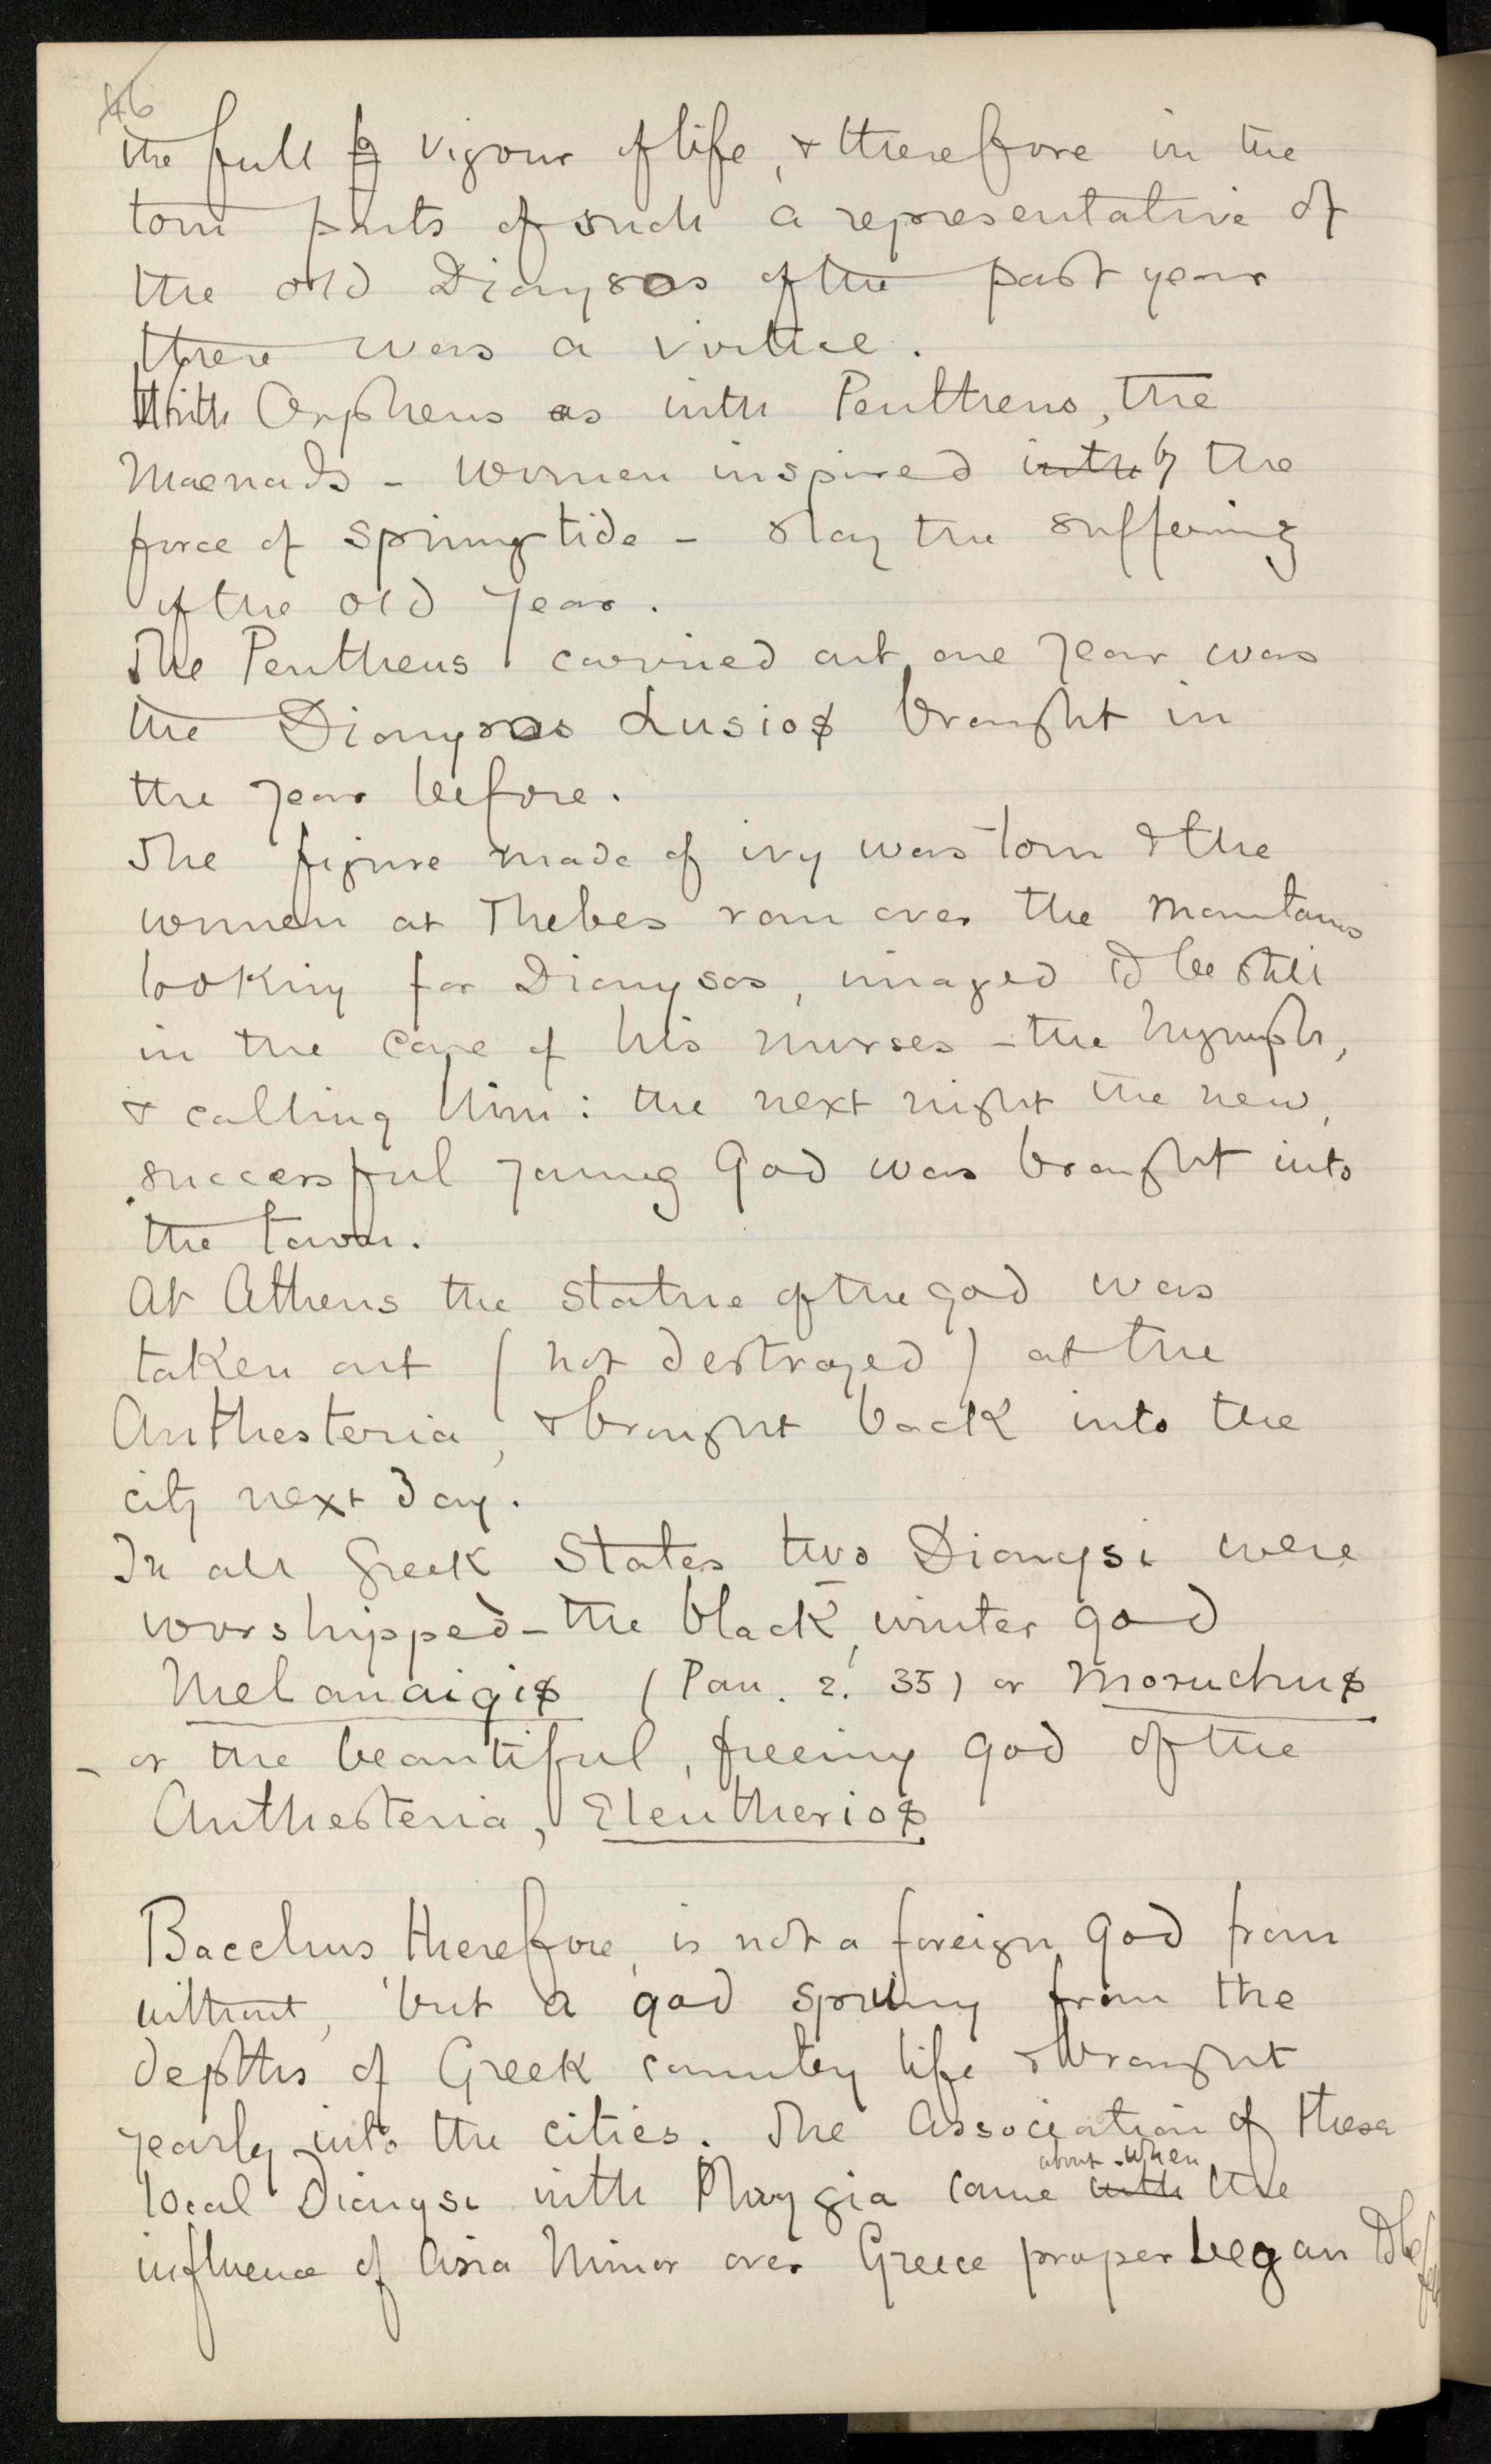 46
the full vigour of life, & therefore in the
torn parts of such a representative of
the old Dionysos of the past year
there was a virtue.
With Orpheus as with Pentheus, the
Maenads - women inspired with by the
force of springtide - slay the suffering
of the old year.
The Pentheus carried out one year was
the Dionysos Lusios brought in
the year before.
The figure made of ivy was torn & the
women at Thebes ran over the mountains
looking for Dionysos, imaged to be still
in the care of his nurses - the nymphs,
& calling him: the next night the new,
successful young God was brought into
the town.
At Athens the statue of the god was
taken out (not destroyed) at the
Anthesteria, & brought back into the
city next day.
In all Greek States two Dionysi were
worshipped - the black, winter god
Melanaigis (Pau. 2. 35) or Moruchus
- or the beautiful, freeing god of the
Anthesteria, Eleutherios
Bacchus therefore, is not a foreign god from
without, but a god sprung from the
depths of Greek country life & brought
yearly into the cities. The association of these
about when
local Dionysi with Phrygia came with the
influence of Asia Minor over Greece proper began to be